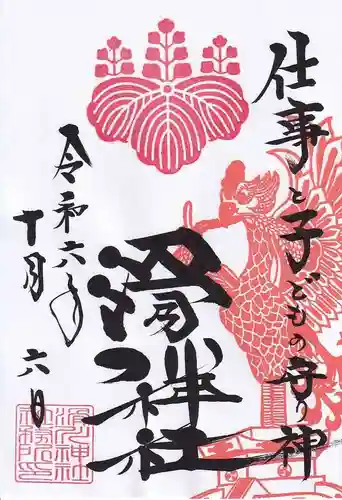 仕事と子どもの守り神
滑川神社
令和六年
十月 六日
滑川神社
社務所印